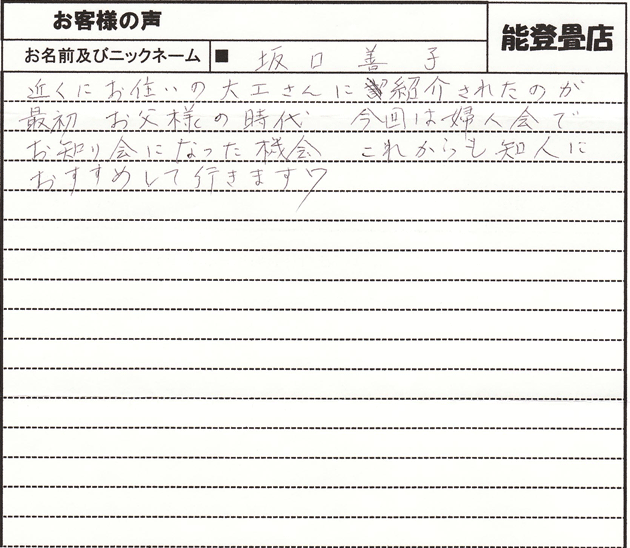 お客様の声
能登畳店
お名前及びニックネーム ■ 坂口善子
近くにお住いの大工さんに紹介されたのが
最初 お父様の時代 今回は婦人会で
お知り会になった機会 これからも知人に
おすすめして行きます♡